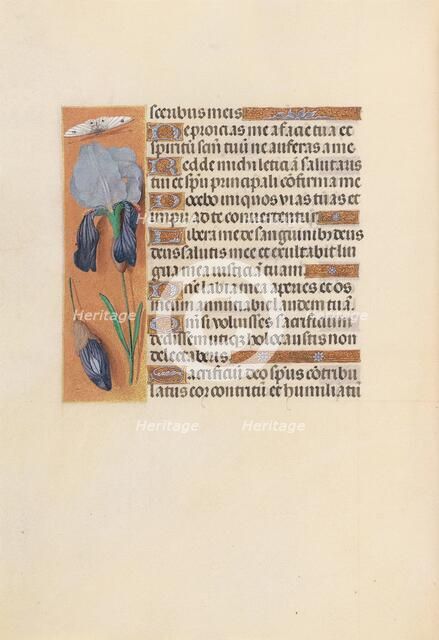 sceribus meis
Ne proicias me a facie tua et
spiritū scm̄ tuū ne auferas a me
Redde michi leticiā salutaris
tui et spū principali cōfirma me
Docebo iniquos vias tuas et
impii ad te convertentur
Libera me de sanguinibꝫ deus
deus salutis mee et exultabit lin
gua mea iusticiā tuam
Dn̄e labia mea aperies et os
meum annunciabit laudem tuā
Qm̄ si voluisses sacrificium
dedissem utique holocaustis non
delectaberis
Sacrificiū deo spūs cōtribu
latus cor contritū et humiliatū
Heritage
Heritage
Heritage
Heritage
Heritage
Heritage
Heritage